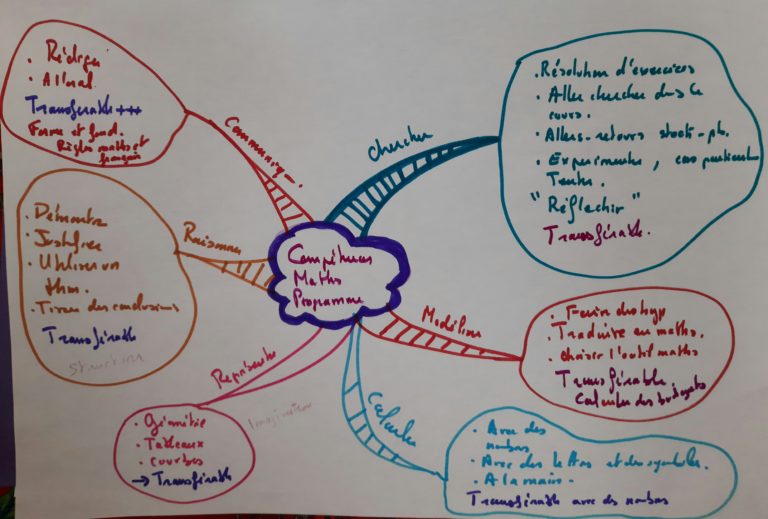 Compétences
Maths
Programme
Communiquer
. Rédiger
. A l'oral
Transférable +++
Forme et fond.
Règles maths et
français
Chercher
. Résolution d'exercices
. Aller chercher dans le
cours.
. Allers-retours
. Expérimenter, cas particuliers
Tester.
"Réfléchir"
Transférable.
Raisonner
. Démontrer
. Justifier
. Utiliser un
thm.
. Tirer des conclusions
Transférable
Structurer
Modéliser
. Faire des hyp
. Traduire en maths.
. choisir l'outil maths
Transférable
Calculer des budgets
Représenter
Imagination
. Géométrie
. Tableaux
. courbes
→ Transférable
Calculer
. Avec des
nombres
. Avec des lettres et des symboles.
. A la main.
Transférable avec des nombres